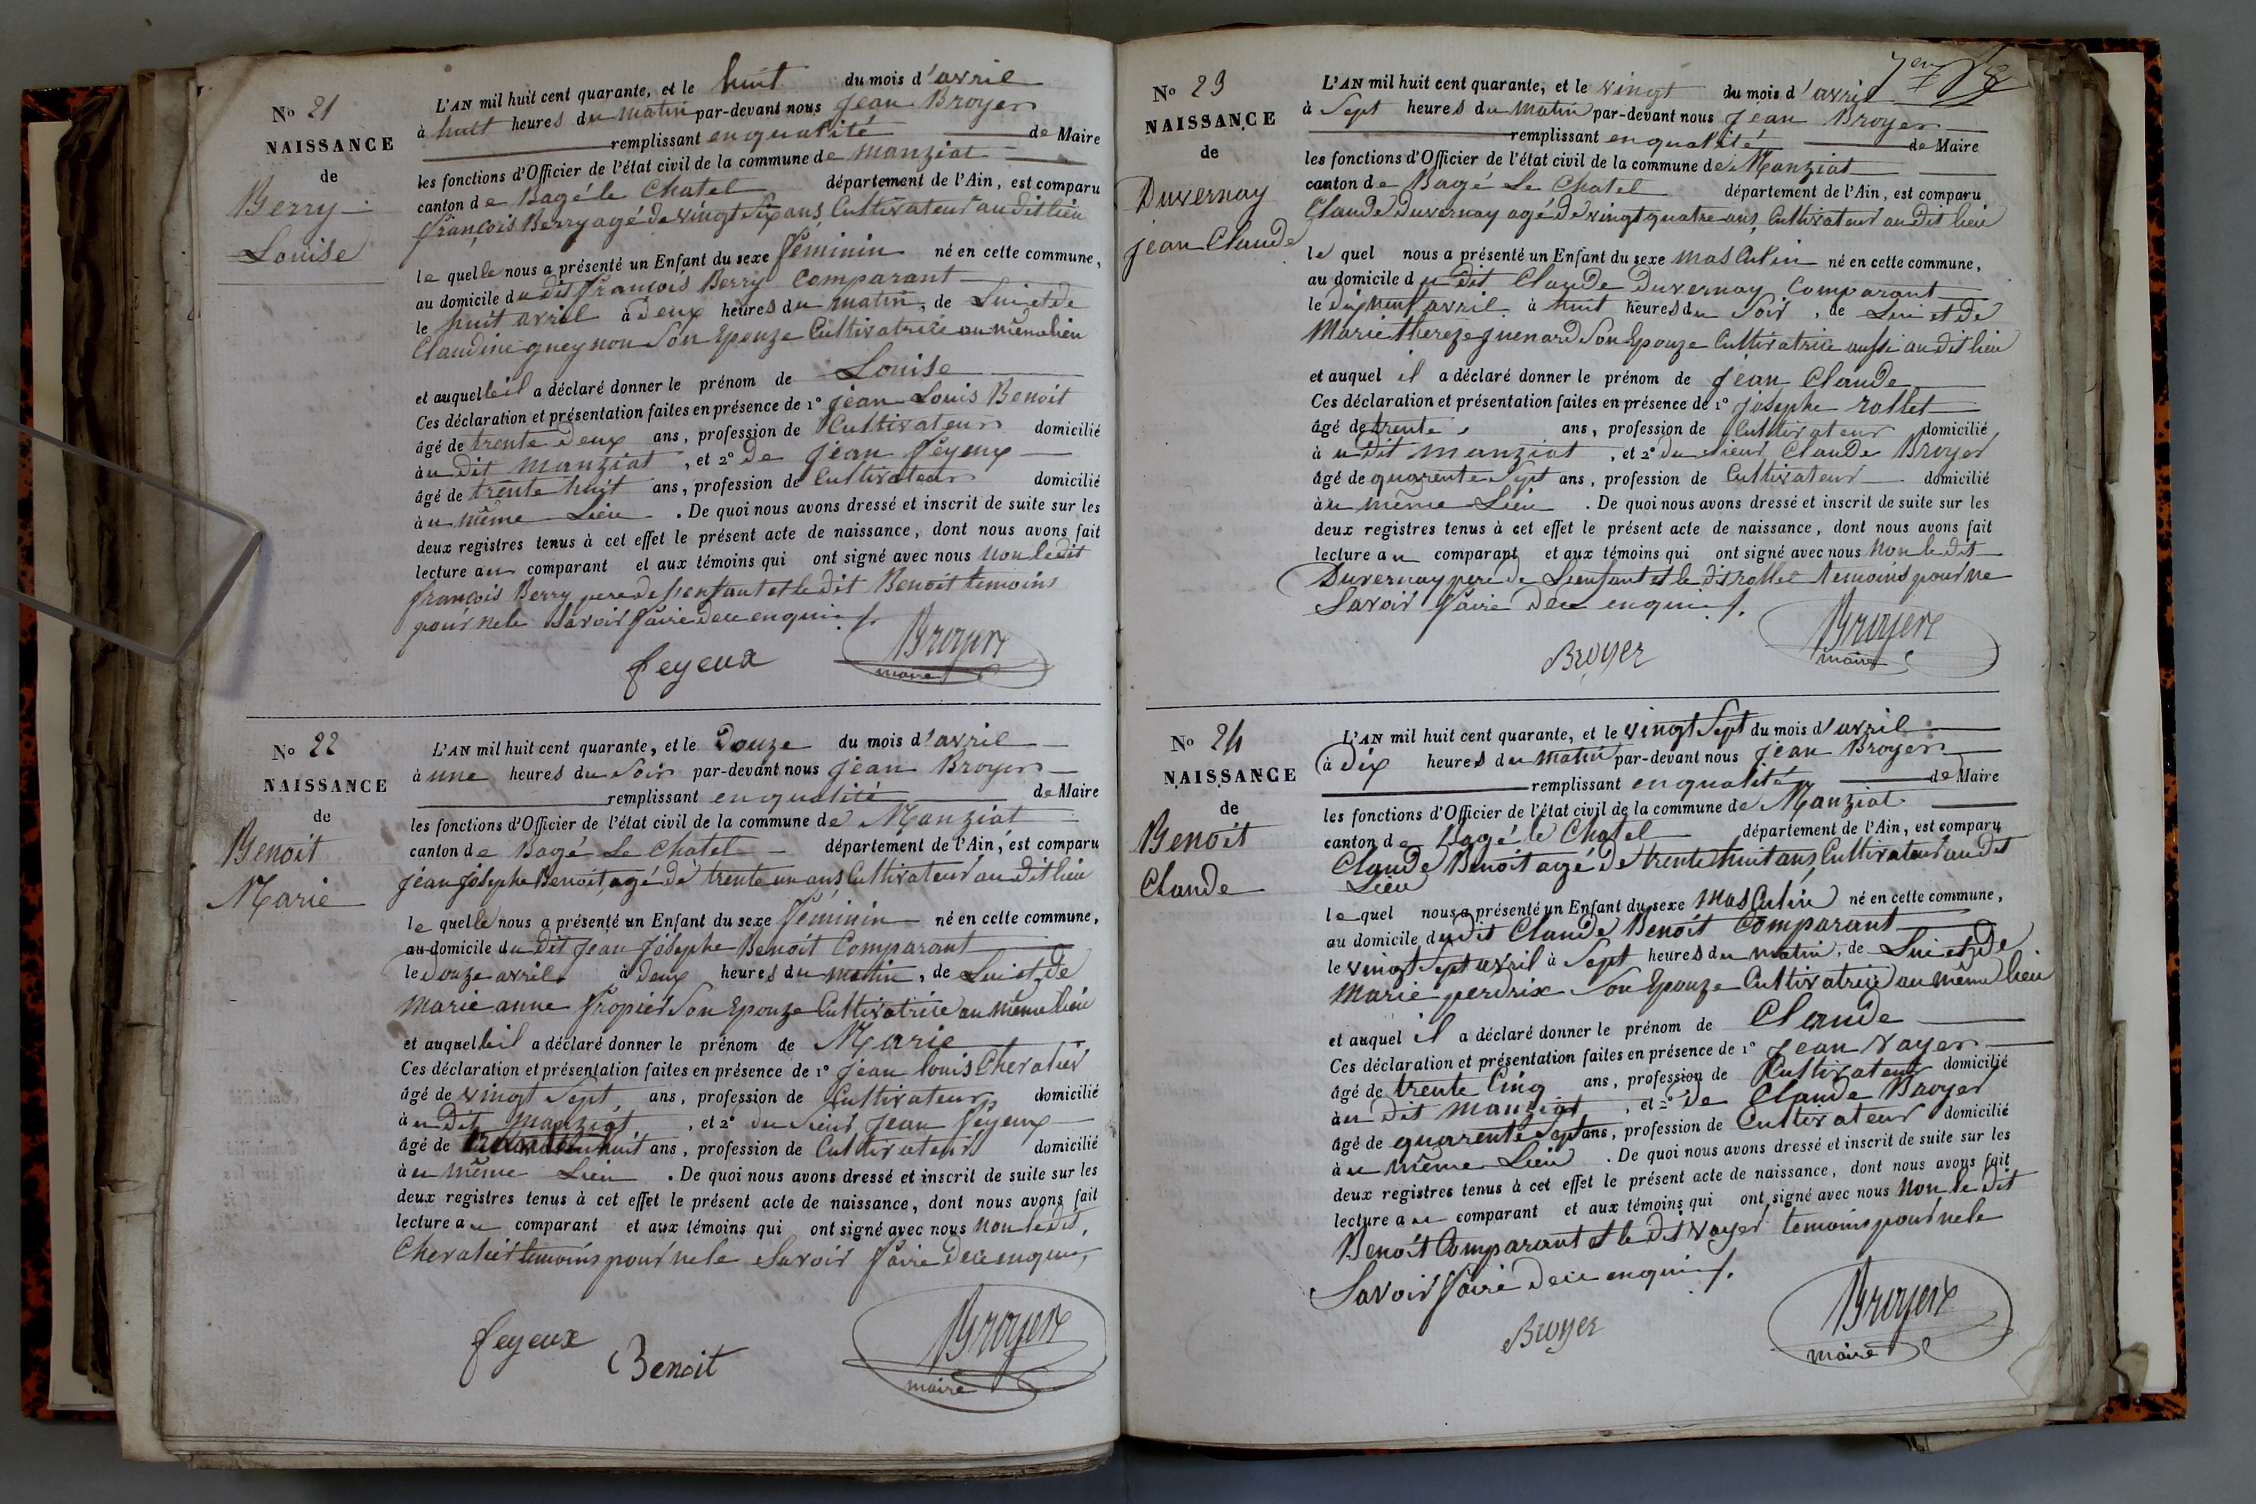 No 21
NAISSANCE
de
Berry
Louise
L'AN mil huit cent quarante, et le huit du mois d'avril
à huit heures du matin par-devant nous Jean Broyer
remplissant en qualité de Maire
les fonctions d'Officier de l'état civil de la commune de Manziat
canton de Bagé le Chatel département de l'Ain, est comparu
françois Berry agé de vingt six ans Cultivateur au dit lieu
le quelle nous a présenté un Enfant du sexe féminin né en cette commune,
au domicile du dit françois Berry Comparant
le huit avril à deux heures du matin, de Lui et de
Claudine gueynon Son Epouze Cultivatrice au même lieu
et auquelle il a déclaré donner le prénom de Louise
Ces déclaration et présentation faites en présence de 1° Jean Louis Benoit
âgé de trente deux ans, profession de Cultivateur domicilié
à u dit Manziat, et 2° de Jean Feyeux
âgé de trente huit ans, profession de Cultivateur domicilié
à u même Lieu. De quoi nous avons dressé et inscrit de suite sur les
deux registres tenus à cet effet le présent acte de naissance, dont nous avons fait
lecture au comparant et aux témoins qui ont signé avec nous Non le dit
françois Berry pere de l'enfant et le dit Benoit temoins
pour ne le Savoir faire de ce enquis
feyeux Broyer
maire
No 22
NAISSANCE
de
Benoit
Marie
L'AN mil huit cent quarante, et le Douze du mois d'avril
à une heures du Soir par-devant nous Jean Broyer
remplissant en qualité de Maire
les fonctions d'Officier de l'état civil de la commune de Manziat
canton de Bagé Le Chatel département de l'Ain, est comparu
Jean Josephe Benoit agé de trente un ans Cultivateur au dit lieu
le quelle nous a présenté un Enfant du sexe féminin né en cette commune,
au domicile du dit Jean Josephe Benoit Comparant
le Douze avril à deux heures du matin, de Lui et de
Marie anne Propier Son Epouze Cultivatrice au même lieu
et auquelle il a déclaré donner le prénom de Marie
Ces déclaration et présentation faites en présence de 1° Jean louis Chevalier
âgé de vingt Sept ans, profession de Cultivateur domicilié
à u dit Manziat, et 2° du Sieur Jean Feyeux
âgé de huit ans, profession de Cultivateur domicilié
à u même Lieu. De quoi nous avons dressé et inscrit de suite sur les
deux registres tenus à cet effet le présent acte de naissance, dont nous avons fait
lecture au comparant et aux témoins qui ont signé avec nous Non le dit
Chevalier temoins pour ne le Savoir faire de ce enquis
feyeux Benoit Broyer
maire
No 23
NAISSANCE
de
Duvernay
jean Claude
L'AN mil huit cent quarante, et le vingt du mois d'avril
à Sept heures du Matin par-devant nous Jean Broyer
remplissant en qualité de Maire
les fonctions d'Officier de l'état civil de la commune de Manziat
canton de Bagé Le Chatel département de l'Ain, est comparu
Claude Duvernay agé de vingt quatre ans, Cultivateur au dit lieu
le quel nous a présenté un Enfant du sexe masculin né en cette commune,
au domicile du dit Claude Duvernay Comparant
le dix neuf avril à huit heures du Soir, de Lui et de
Marie thereze guenard Son Epouze Cultivatrice aussi au dit lieu
et auquel il a déclaré donner le prénom de Jean Claude
Ces déclaration et présentation faites en présence de 1° Josephe rollet
âgé de trente ans, profession de Cultivateur domicilié
à u dit Manziat, et 2° du Sieur Claude Broyer
âgé de quarente Sept ans, profession de Cultivateur domicilié
à u même Lieu. De quoi nous avons dressé et inscrit de suite sur les
deux registres tenus à cet effet le présent acte de naissance, dont nous avons fait
lecture au comparant et aux témoins qui ont signé avec nous Non le dit
Duvernay pere de L'enfant et le dit rollet temoins pour ne
Savoir faire de ce enquis
Broyer Broyer
maire
No 24
NAISSANCE
de
Benoit
Claude
L'AN mil huit cent quarante, et le vingt Sept du mois d'avril
à dix heures du matin par-devant nous Jean Broyer
remplissant en qualité de Maire
les fonctions d'Officier de l'état civil de la commune de Manziat
canton de Bagé le Chatel département de l'Ain, est comparu
Claude Benoit agé de trente huit ans, Cultivateur au dit
Lieu
le quel nous a présenté un Enfant du sexe masculin né en cette commune,
au domicile du dit Claude Benoit Comparant
le vingt Sept avril à Sept heures du matin, de Lui et de
Marie perdrix Son Epouze Cultivatrice au même lieu
et auquel il a déclaré donner le prénom de Claude
Ces déclaration et présentation faites en présence de 1° Jean vayer
âgé de trente Cinq ans, profession de Cultivateur domicilié
à u dit Manziat, et 2° de Claude Broyer
âgé de quarente Sept ans, profession de Cultivateur domicilié
à u même Lieu. De quoi nous avons dressé et inscrit de suite sur les
deux registres tenus à cet effet le présent acte de naissance, dont nous avons fait
lecture au comparant et aux témoins qui ont signé avec nous Non le dit
Benoit Comparant et le dit vayer temoins pour ne le
Savoir faire de ce enquis
Broyer Broyer
maire